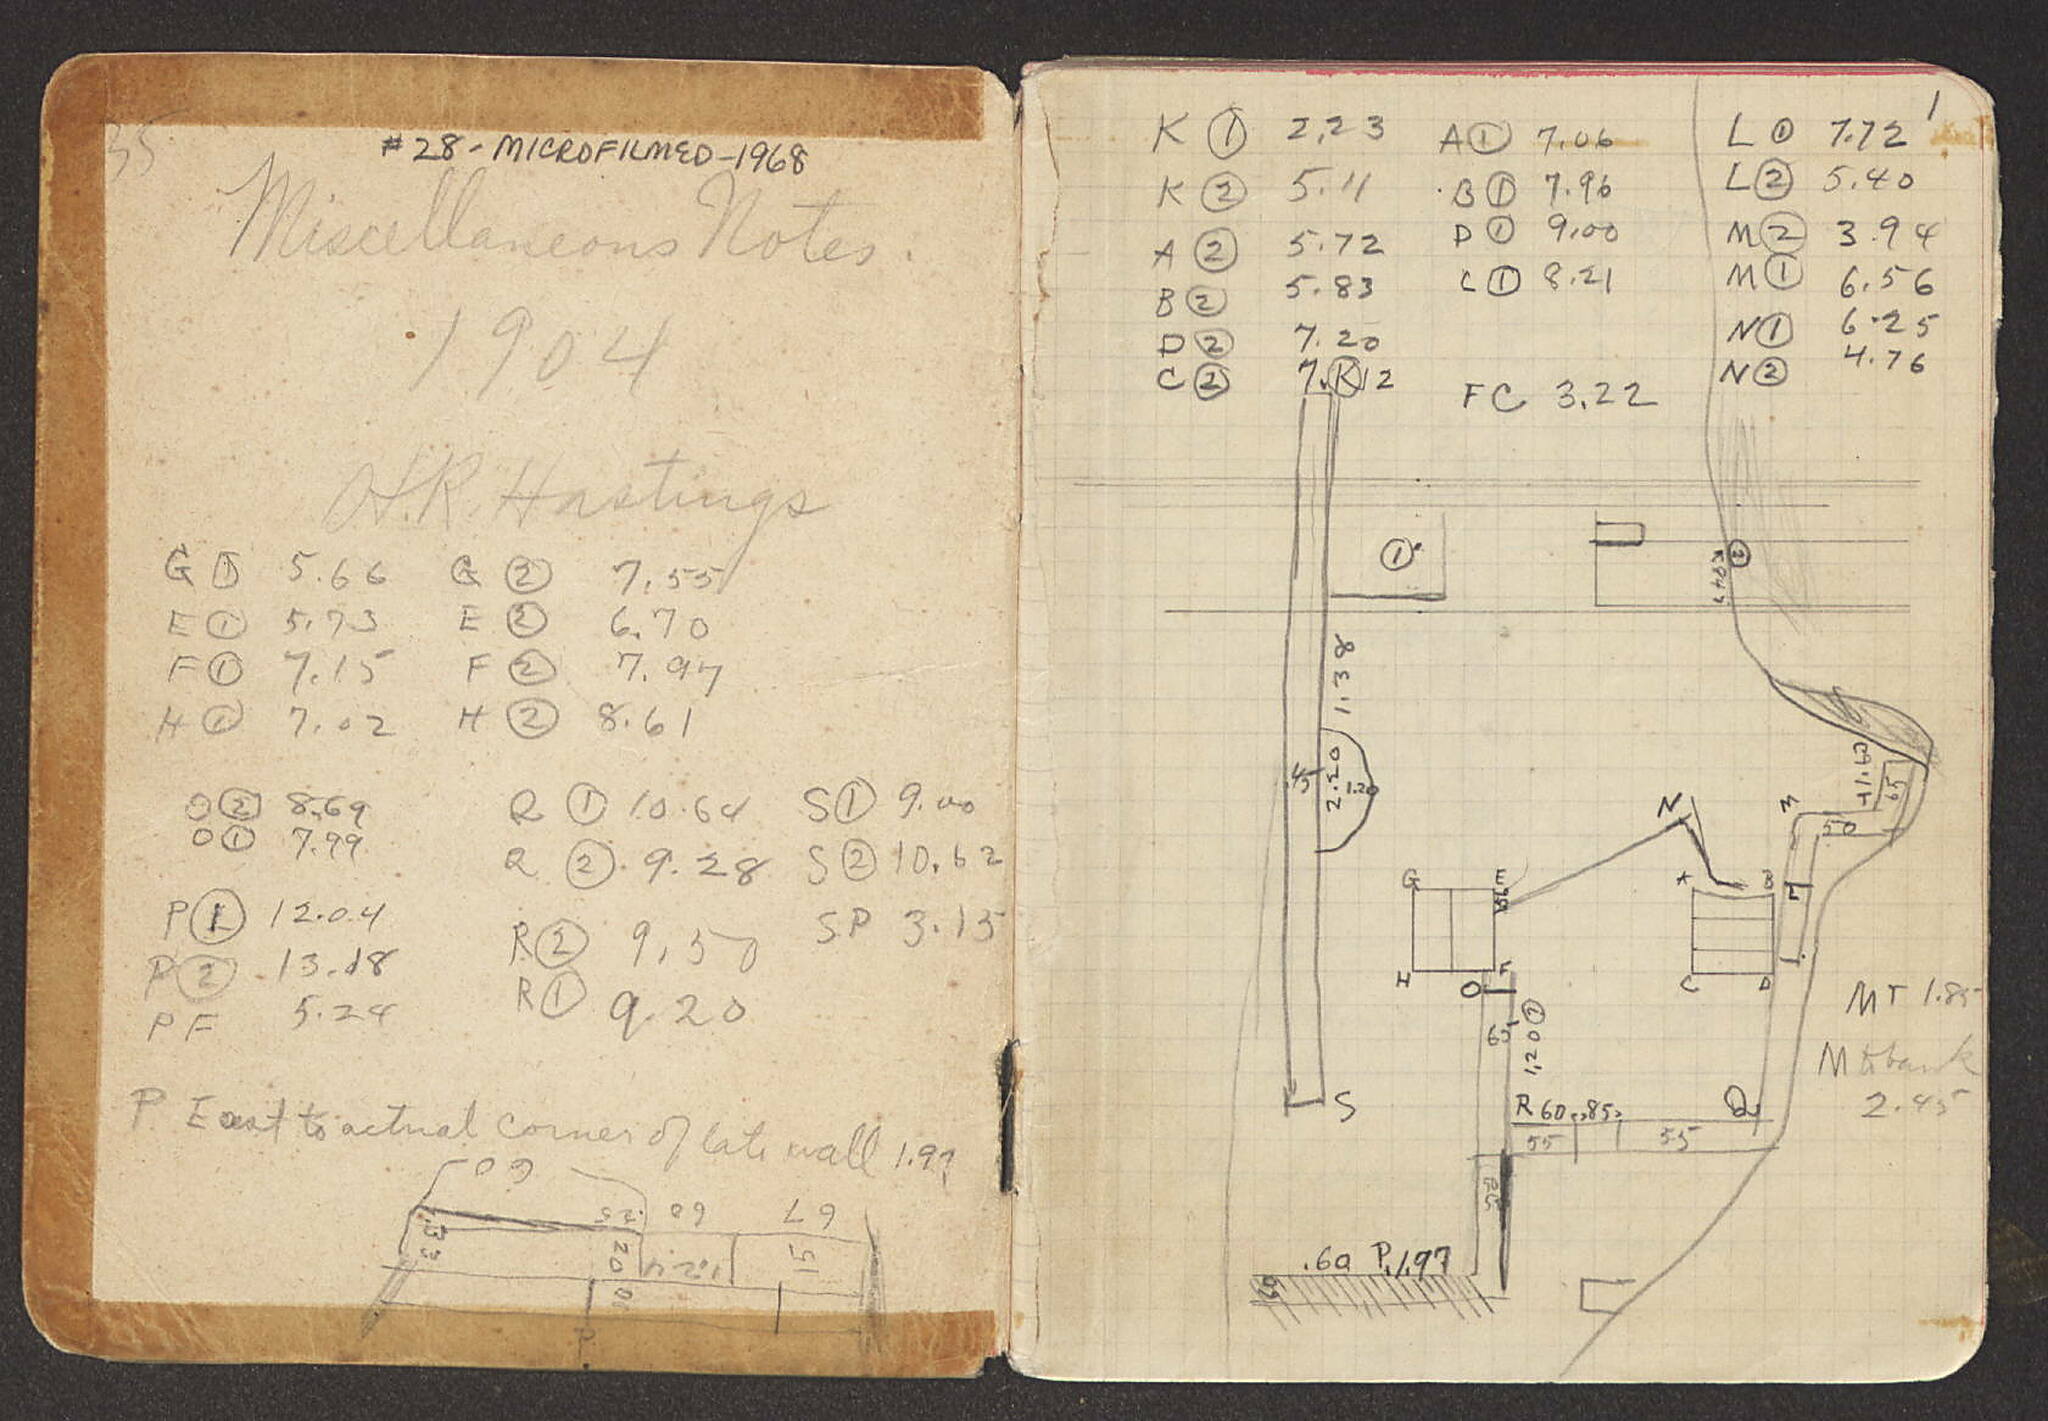 35
#28 - MICROFILMED - 1968
Miscellaneous Notes.
1904
H.R. Hastings
G ① 5.66 G ② 7.55
E ① 5.73 E ② 6.70
F ① 7.15 F ② 7.97
H ① 7.02 H ② 8.61
O ② 8.69
O ① 7.99
Q ① 10.64 S ① 9.00
Q ② 9.28 S ② 10.62
P ① 12.04
P ② 13.18
PF 5.24
R ② 9.50 SP 3.15
R ① 9.20
P East to actual corner of late wall 1.97
60
.33 .25 68 67
20 51
10
P
1
K ① 2.23 A ① 7.06 L ① 7.72
K ② 5.11 B ① 7.96 L ② 5.40
A ② 5.72 D ① 9.00 M ② 3.94
B ② 5.83 C ① 8.21 M ① 6.56
D ② 7.20 N ① 6.25
C ② 7.12 N ② 4.76
K
FC 3.22
① ②
1.38
.45 2.20 1.20
65
N M 50
G E A B L
H F C D
O
65 1.20 ①
MT 1.85
M to bank
2.45
S R 60 .85 Q
55 55
.60 P 1.97